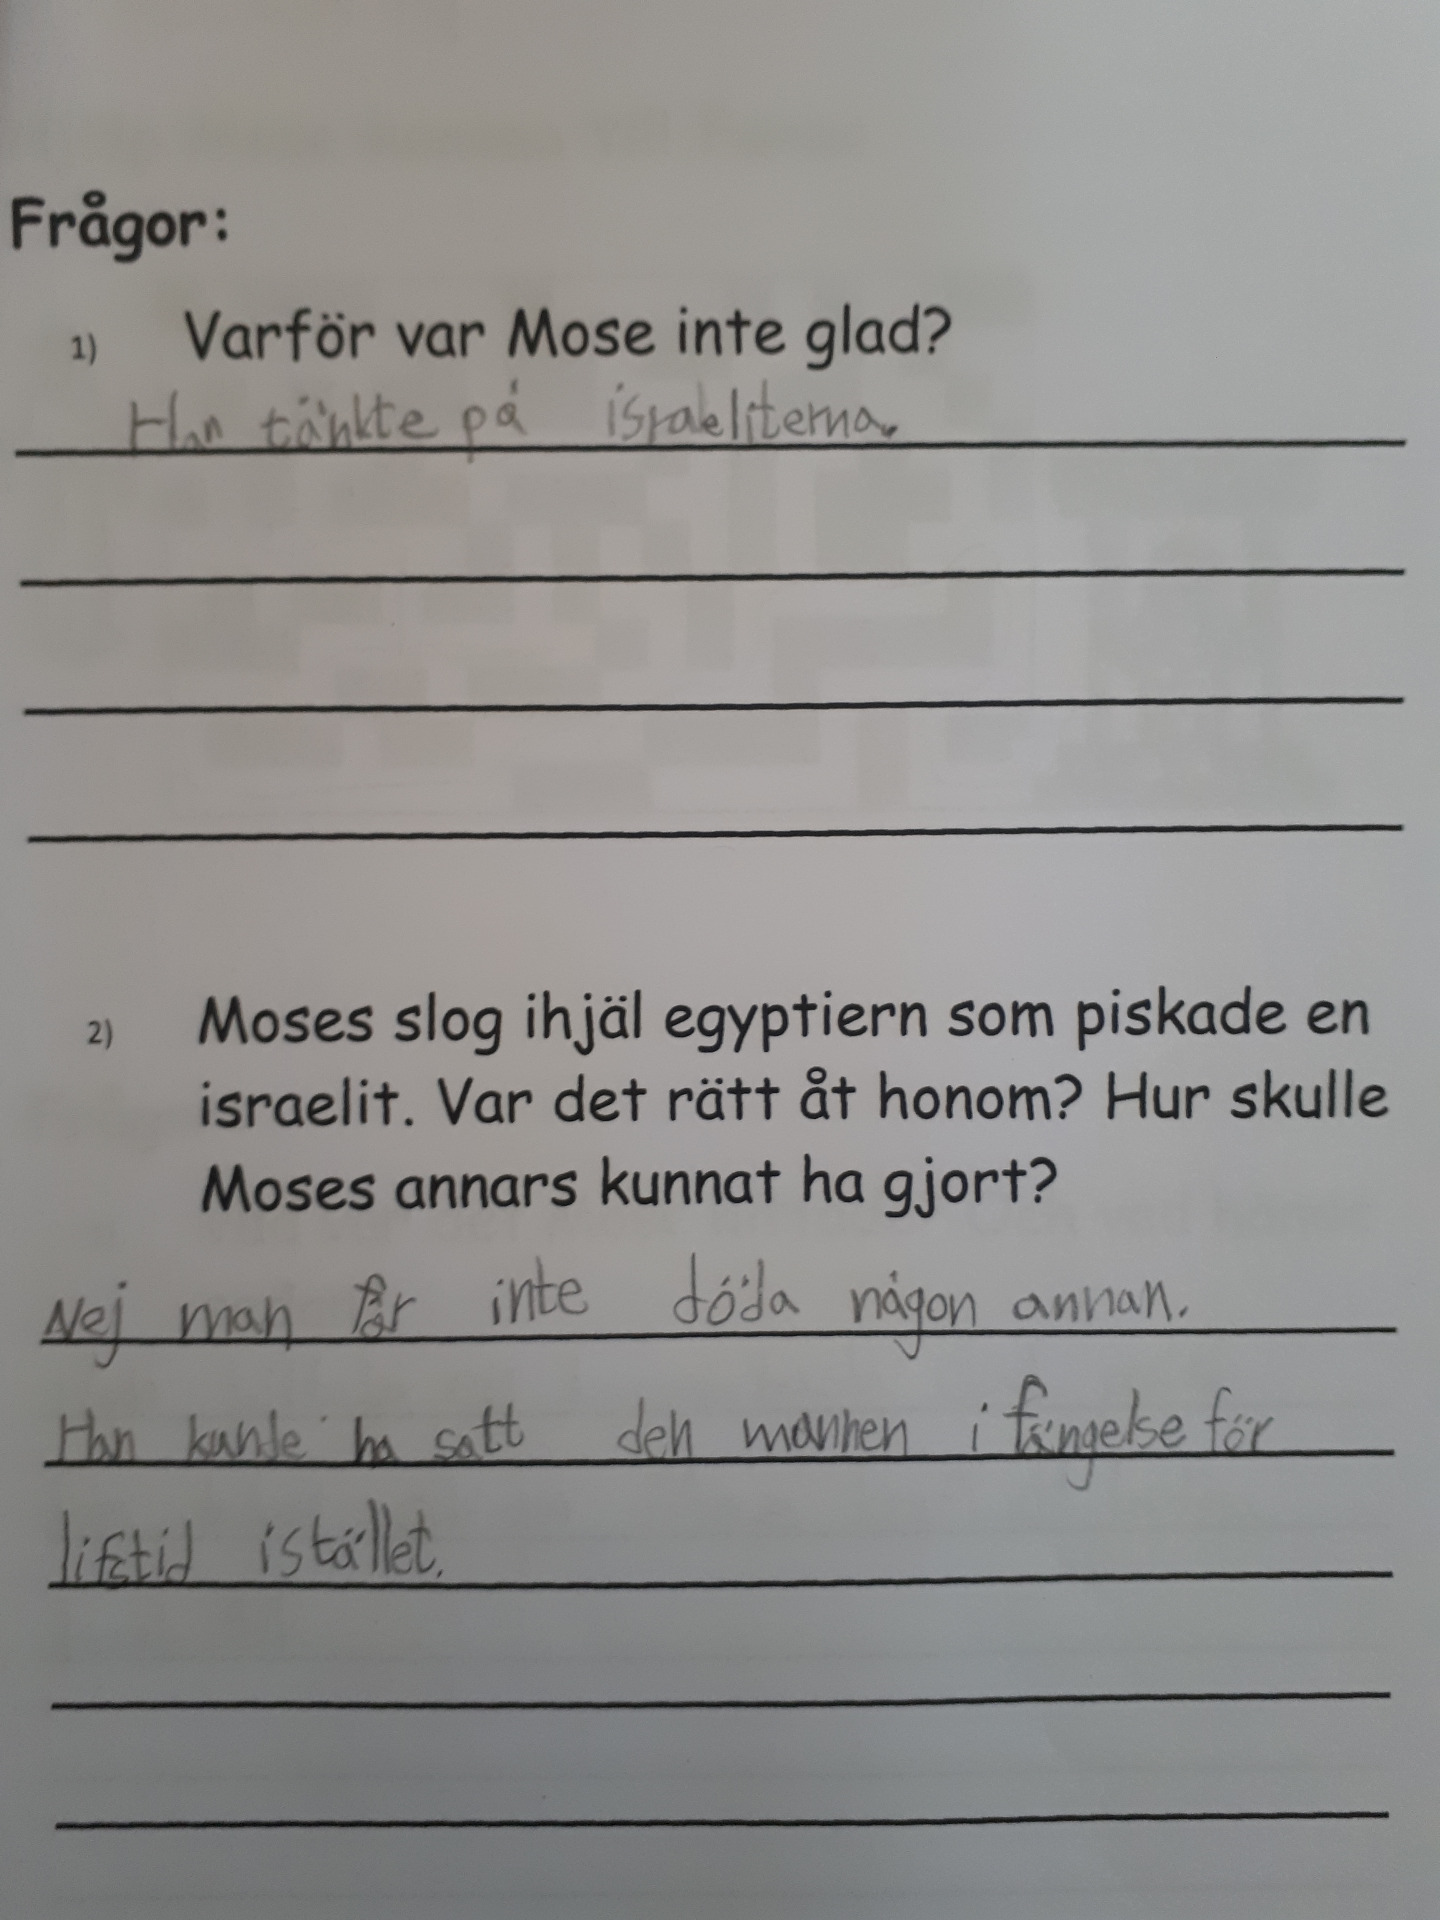 Frågor:
1) Varför var Mose inte glad?
Han tänkte på israeliterna.
2) Moses slog ihjäl egyptiern som piskade en
israelit. Var det rätt åt honom? Hur skulle
Moses annars kunnat ha gjort?
Nej man får inte döda någon annan.
Han kunde ha satt den mannen i fängelse för
lifstid istället.